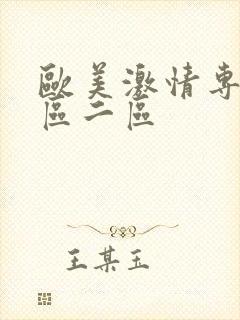 歐美激情專
區二區
王某玉